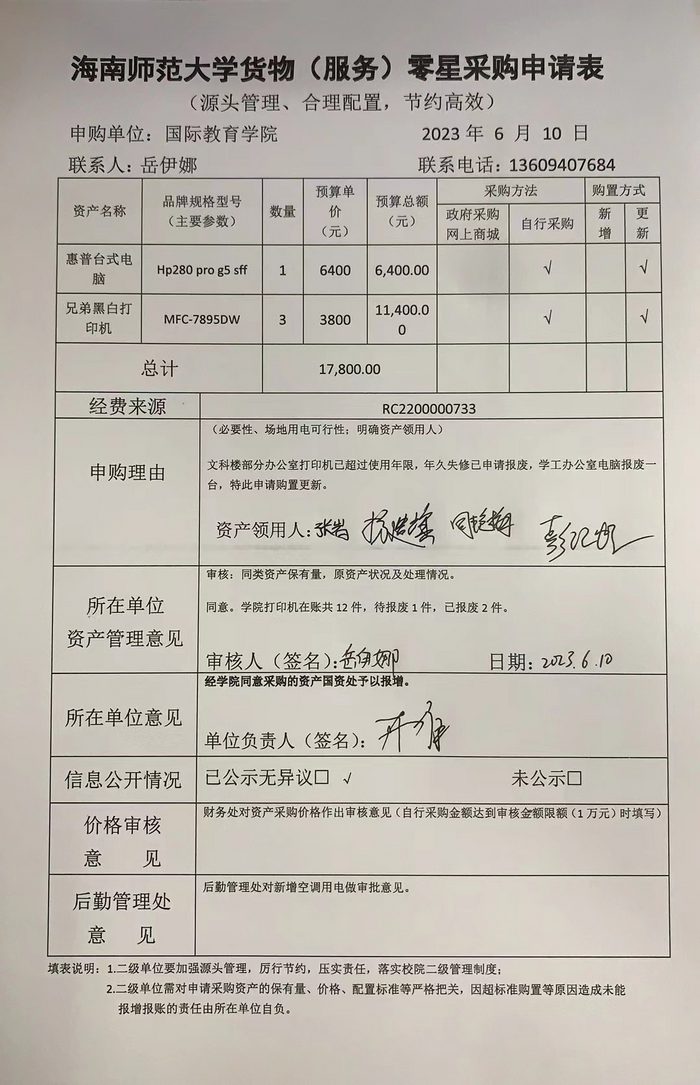 海南师范大学货物（服务）零星采购申请表
（源头管理、合理配置，节约高效）
申购单位：国际教育学院 2023 年 6 月 10 日
联系人：岳伊娜 联系电话：13609407684
资产名称 品牌规格型号（主要参数） 数量 预算单价（元） 预算总额（元） 采购方法 购置方式
政府采购网上商城 自行采购 新增 更新
惠普台式电脑 Hp280 pro g5 sff 1 6400 6,400.00 √ √
兄弟黑白打印机 MFC-7895DW 3 3800 11,400.00 √ √
总计 17,800.00
经费来源 RC2200000733
申购理由
（必要性、场地用电可行性；明确资产领用人）
文科楼部分办公室打印机已超过使用年限，年久失修已申请报废，学工办公室电脑报废一
台，特此申请购置更新。
资产领用人：
所在单位
资产管理意见
审核：同类资产保有量，原资产状况及处理情况。
同意。学院打印机在账共 12 件，待报废 1 件，已报废 2 件。
审核人（签名）：岳伊娜 日期：2023.6.10
所在单位意见
经学院同意采购的资产国资处予以报增。
单位负责人（签名）：
信息公开情况 已公示无异议□ √ 未公示□
价格审核
意 见
财务处对资产采购价格作出审核意见（自行采购金额达到审核金额限额（1 万元）时填写）
后勤管理处
意 见
后勤管理处对新增空调用电做审批意见。
填表说明：1.二级单位要加强源头管理，厉行节约，压实责任，落实校院二级管理制度；
2.二级单位需对申请采购资产的保有量、价格、配置标准等严格把关，因超标准购置等原因造成未能
报增报账的责任由所在单位自负。